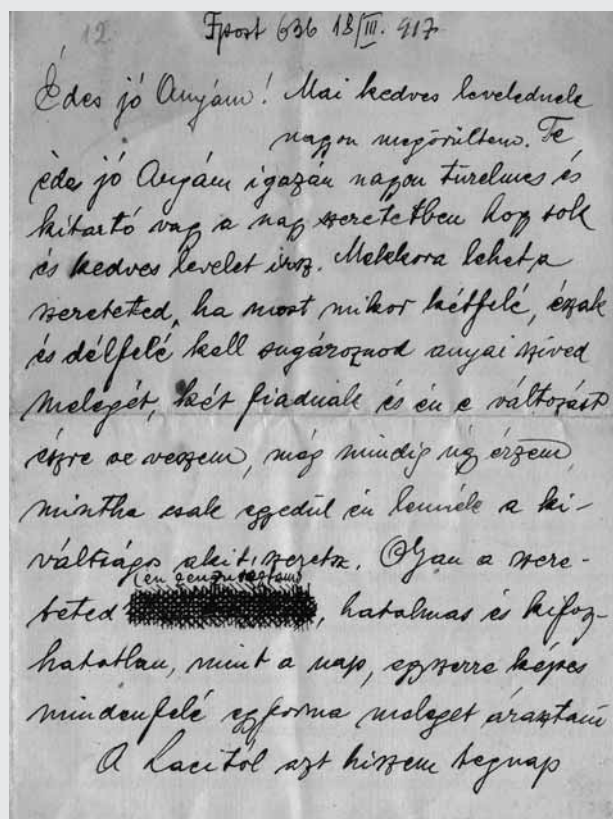 12 Fpost 636 18/III. 917
Édes jó Anyám! Mai kedves levelednek
nagyon megörültem. Te
édes jó Anyám igazán nagyon türelmes és
kitartó vagy a nagy szeretetben hogy sok
és kedves levelet irsz. Mekkora lehet a
szereteted, ha most mikor kétfelé, észak
és délfelé kell sugároznod anyai szived
melegét, két fiadnak és én e változást
észre se veszem, még mindig úgy érzem,
mintha csak egyedül én lennék a ki-
váltságos akit szeretsz. Olyan a szere-
(én cenzuráztam)
teted , hatalmas és kifogy-
hatatlan, mint a nap, egyszerre képes
mindenfelé egyforma meleget árasztani
A Lacitól azt hiszem tegnap